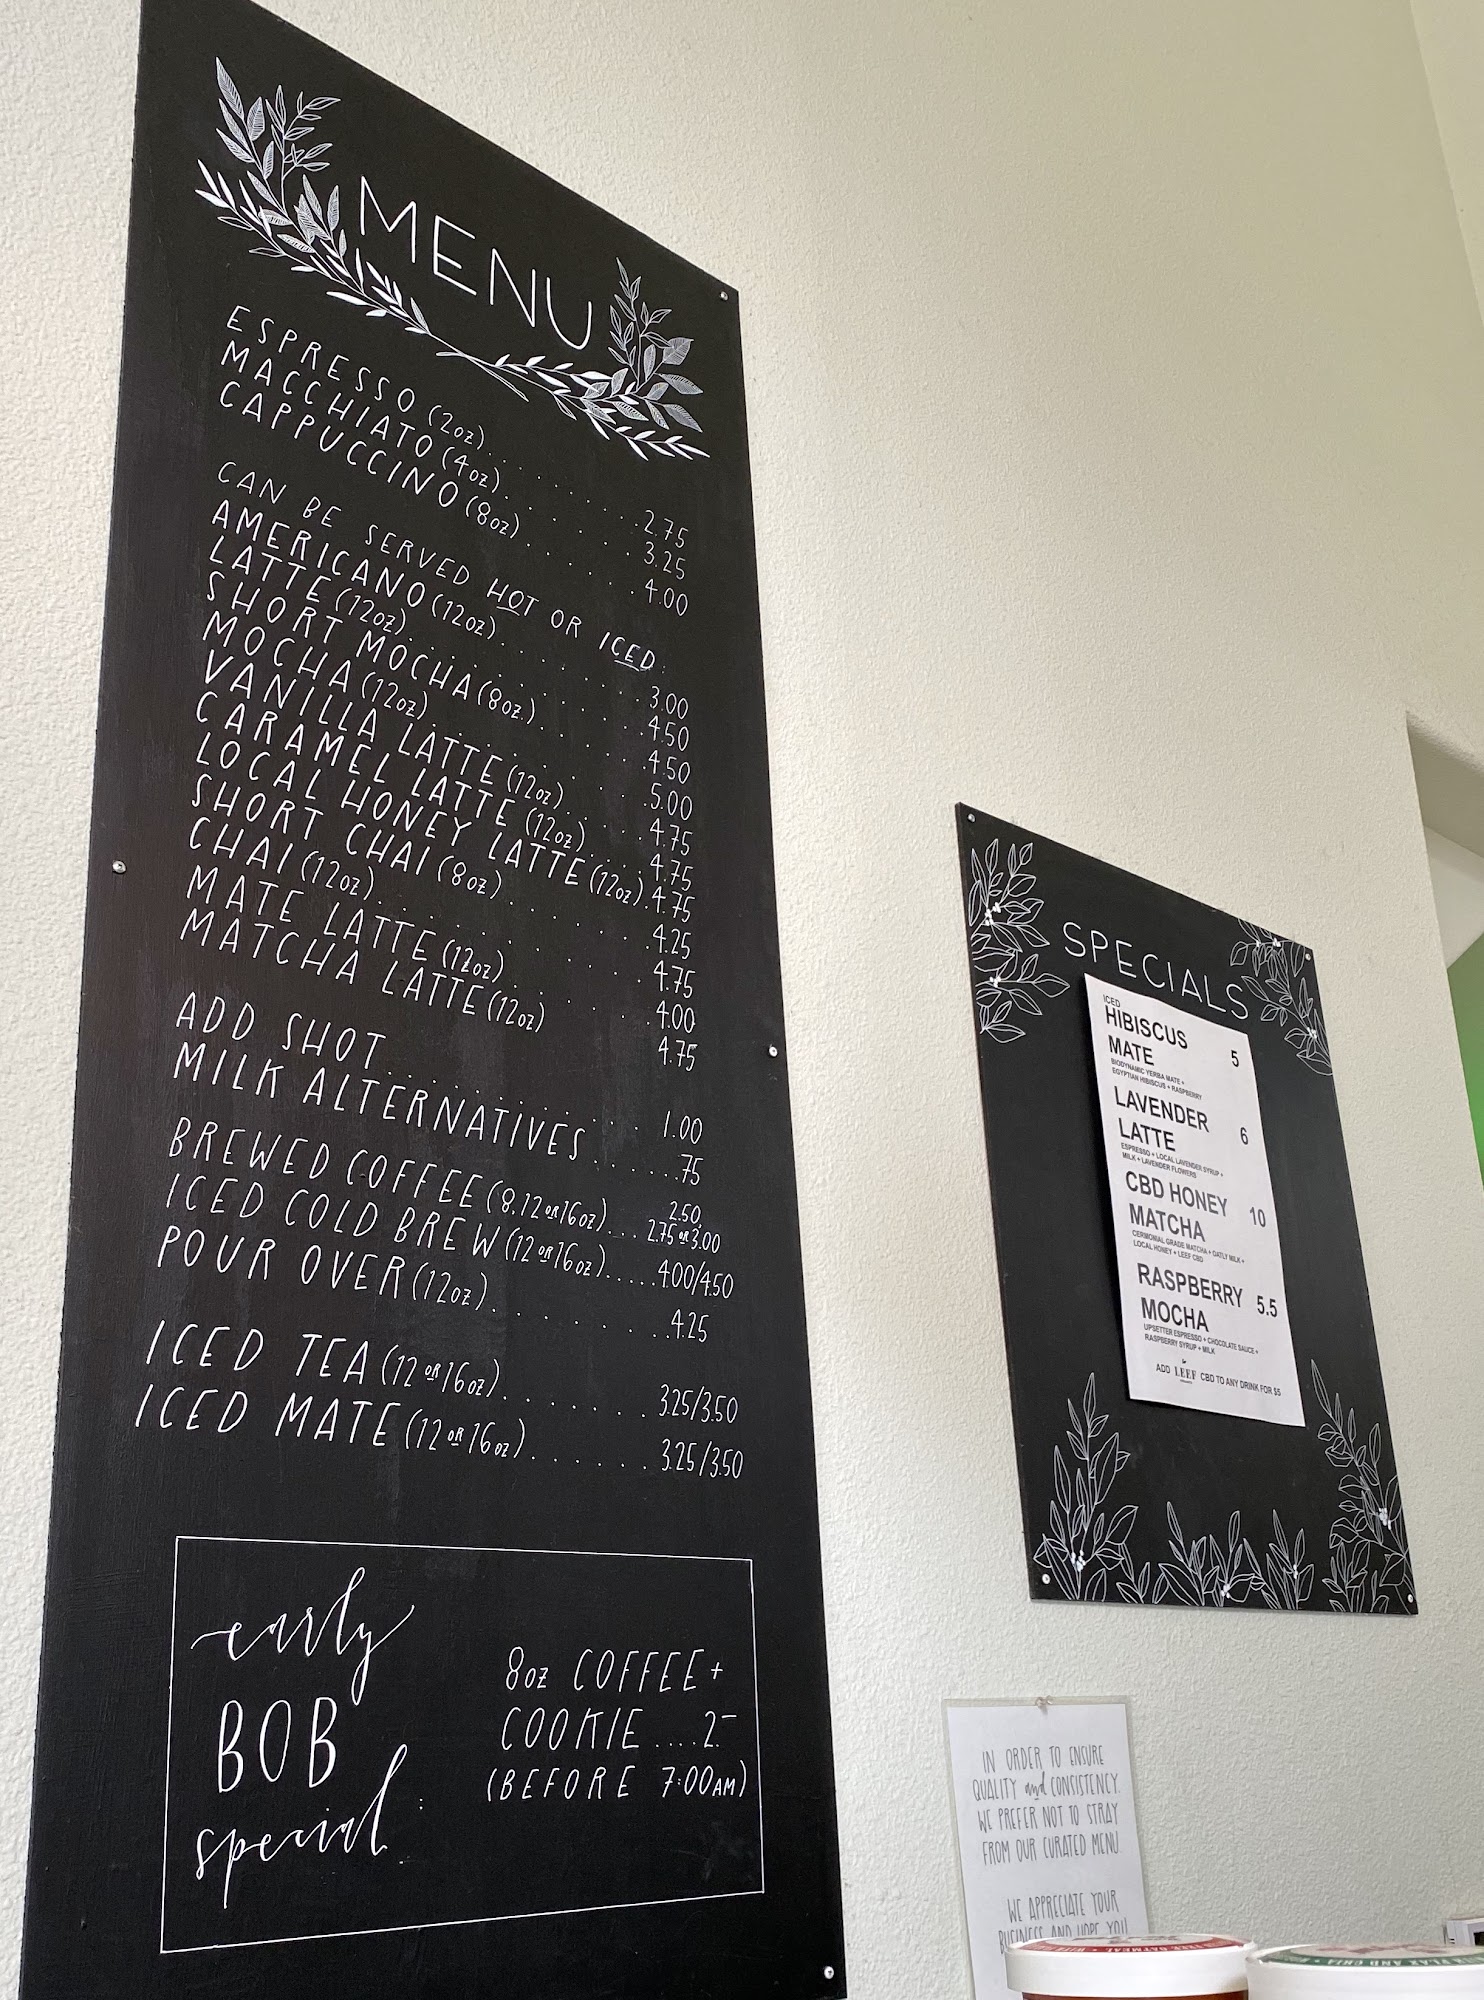 MENU
ESPRESSO (2oz)..........2.75
MACCHIATO (4oz)..........3.25
CAPPUCCINO (8oz)..........4.00
CAN BE SERVED HOT OR ICED:
AMERICANO (12oz)..........3.00
LATTE (12oz)..........4.50
SHORT MOCHA (8oz.)..........4.50
MOCHA (12oz)..........5.00
VANILLA LATTE (12oz)..........4.75
CARAMEL LATTE (12oz)..........4.75
LOCAL HONEY LATTE (12oz).4.75
SHORT CHAI (8oz)..........4.25
CHAI (12oz)..........4.75
MATE LATTE (12oz)..........4.00
MATCHA LATTE (12oz) 4.75
ADD SHOT..........1.00
MILK ALTERNATIVES......75
BREWED COFFEE (8,12 OR 16oz)... 2.50, 2.75 OR 3.00
ICED COLD BREW (12 OR 16oz).....4.00/4.50
POUR OVER (12oz)..........4.25
ICED TEA (12 OR 16oz)........3.25/3.50
ICED MATE (12 OR 16oz).......3.25/3.50
early
BOB
special:
8oz COFFEE +
COOKIE....2.-
(BEFORE 7:00AM)
SPECIALS
ICED
HIBISCUS
MATE 5
BIODYNAMIC YERBA MATE +
EGYPTIAN HIBISCUS + RASPBERRY
LAVENDER
LATTE 6
ESPRESSO + LOCAL LAVENDER SYRUP +
MILK + LAVENDER FLOWERS
CBD HONEY
MATCHA 10
CERMONIAL GRADE MATCHA + OATLY MILK +
LOCAL HONEY + LEEF CBD
RASPBERRY
MOCHA 5.5
UPSETTER ESPRESSO + CHOCOLATE SAUCE +
RASPBERRY SYRUP + MILK
ADD LEEF CBD TO ANY DRINK FOR $5
IN ORDER TO ENSURE
QUALITY and CONSISTENCY,
WE PREFER NOT TO STRAY
FROM OUR CURATED MENU.
WE APPRECIATE YOUR
BUSINESS AND HOPE YOU
OATMEAL
FLAX AND CHIA